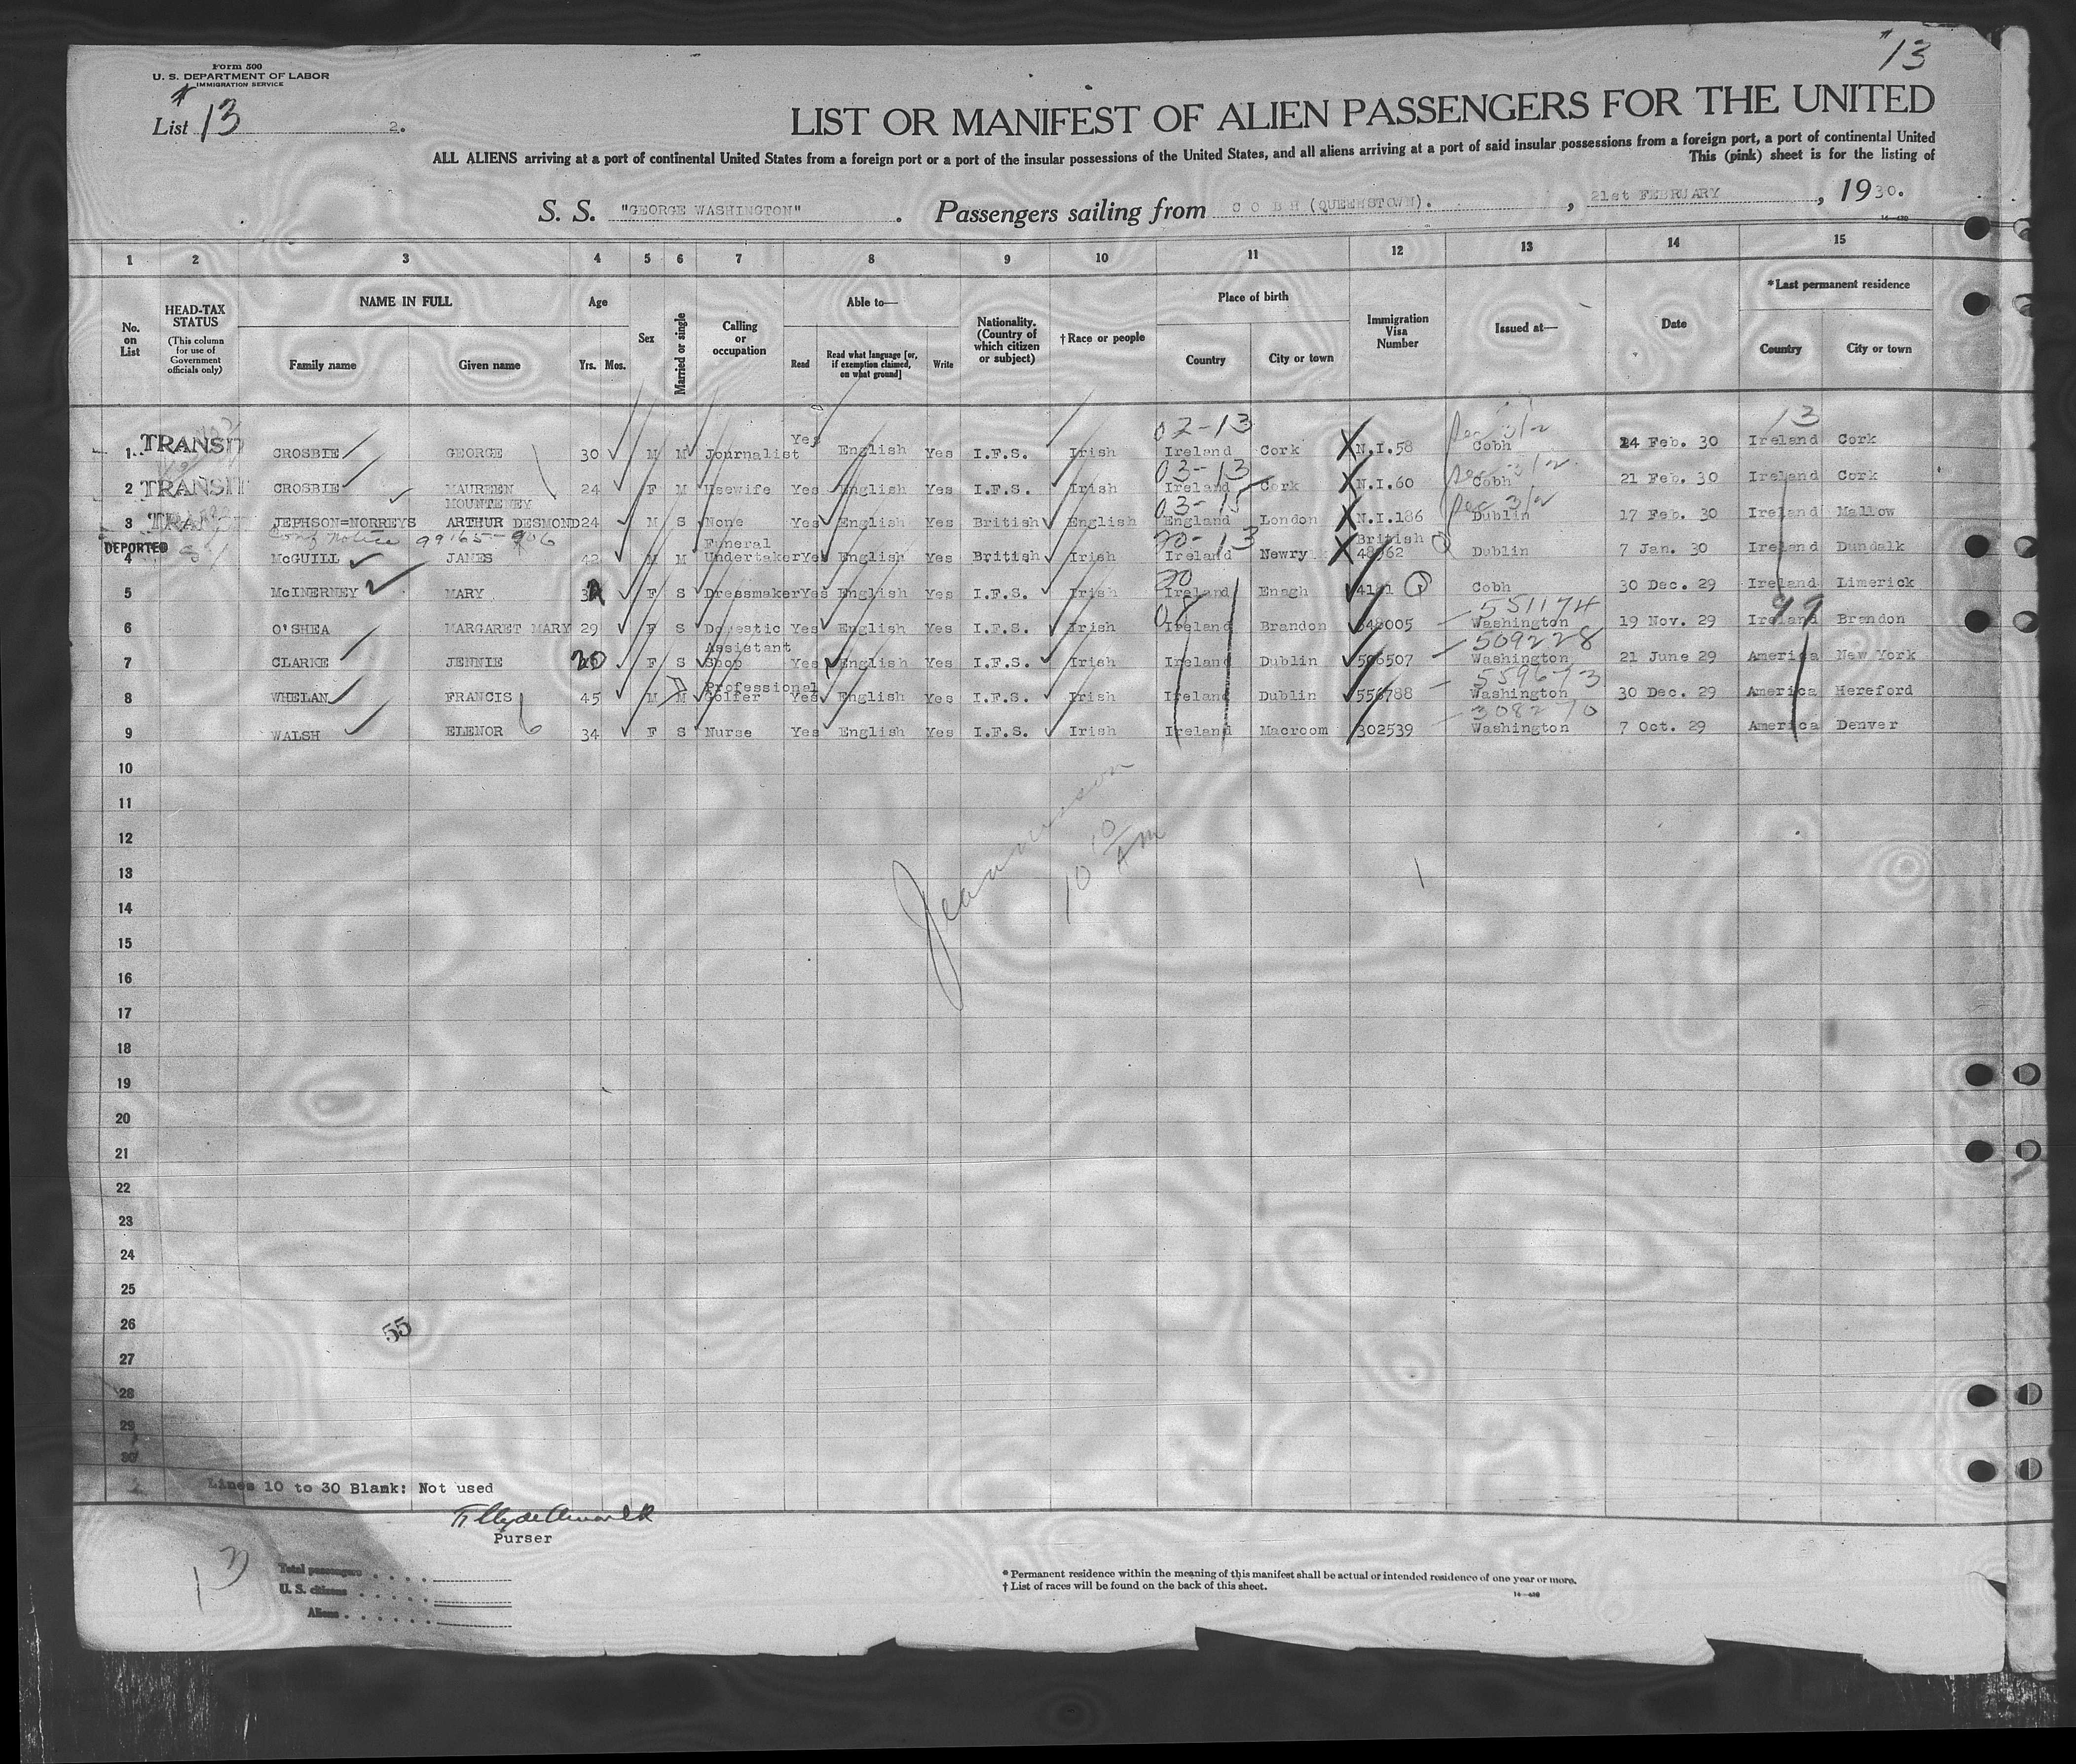 13
Form 500
U. S. DEPARTMENT OF LABOR
IMMIGRATION SERVICE
List 13 2.
LIST OR MANIFEST OF ALIEN PASSENGERS FOR THE UNITED
ALL ALIENS arriving at a port of continental United States from a foreign port or a port of the insular possessions of the United States, and all aliens arriving at a port of said insular possessions from a foreign port, a port of continental United
This (pink) sheet is for the listing of
S. S. "GEORGE WASHINGTON" . Passengers sailing from C O B H (QUEENSTOWN). , 21st FEBRUARY , 1930.
1 2 3 4 5 6 7 8 9 10 11 12 13 14 15
No. on List
HEAD-TAX STATUS (This column for use of Government officials only)
NAME IN FULL
Family name Given name
Age
Yrs. Mos.
Sex
Married or single
Calling or occupation
Able to—
Read Read what language [or, if exemption claimed, on what ground] Write
Nationality. (Country of which citizen or subject)
†Race or people
Place of birth
Country City or town
Immigration Visa Number
Issued at—
Date
*Last permanent residence
Country City or town
02-13 13
1 TRANSIT CROSBIE GEORGE 30 M M Journalist Yes English Yes I.F.S. Irish Ireland Cork N.I.58 Cobh 14 Feb. 30 Ireland Cork
03-13
2 TRANSIT CROSBIE MAUREEN 24 F M Hsewife Yes English Yes I.F.S. Irish Ireland Cork N.I.60 Cobh 21 Feb. 30 Ireland Cork
MOUNTENEY 03-15
3 JEPHSON=NORREYS ARTHUR DESMOND 24 M S None Yes English Yes British English England London N.I.186 Dublin 17 Feb. 30 Ireland Mallow
DEPORTED 99165-906 Funeral British
4 McGUILL JAMES 42 M M Undertaker Yes English Yes British Irish Ireland Newry 48962 Dublin 7 Jan. 30 Ireland Dundalk
5 McINERNEY MARY F S Dressmaker Yes English Yes I.F.S. Irish Ireland Enagh Cobh 30 Dec. 29 Ireland Limerick
551174 99
6 O'SHEA MARGARET MARY 29 F S Domestic Yes English Yes I.F.S. Irish Ireland Brandon Washington 19 Nov. 29 Ireland Brandon
Assistant 509228
7 CLARKE JENNIE 20 F S Shop Yes English Yes I.F.S. Irish Ireland Dublin 506507 Washington 21 June 29 America New York
Professional 559673
8 WHELAN FRANCIS 45 M M Golfer Yes English Yes I.F.S. Irish Ireland Dublin 556788 Washington 30 Dec. 29 America Hereford
308270
9 WALSH ELENOR 34 F S Nurse Yes English Yes I.F.S. Irish Ireland Macroom 302539 Washington 7 Oct. 29 America Denver
10
11
12
13
14
15
16
17
18
19
20
21
22
23
24
25
26
55
27
28
29
30
Lines 10 to 30 Blank: Not used
Purser
13
Total passengers
U. S. citizens
Aliens
* Permanent residence within the meaning of this manifest shall be actual or intended residence of one year or more.
† List of races will be found on the back of this sheet.